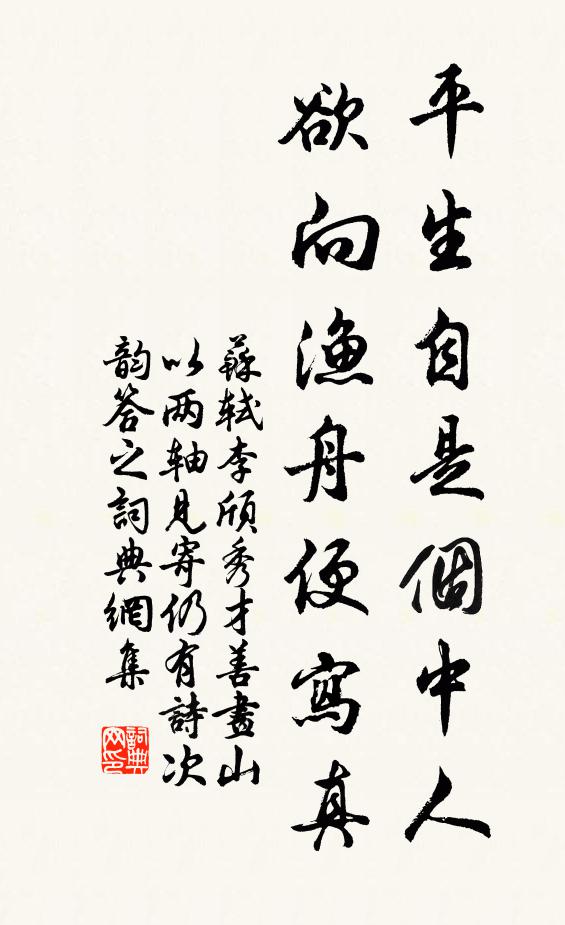 平生自是個中人
欲向漁舟便寫真
蘇軾李頎秀才善畫山
以两轴見寄仍有詩次
韵答之詞典網集
詞典
网印